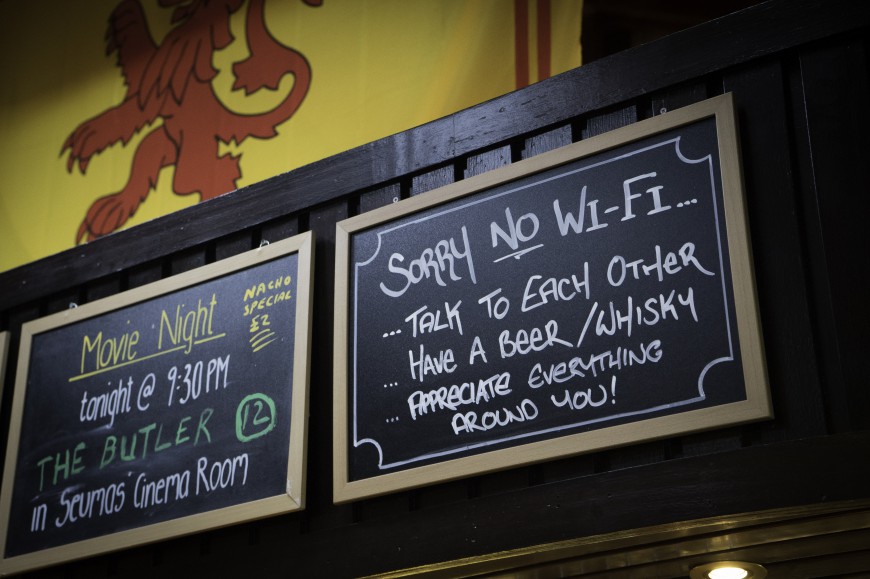 Movie Night
NACHO
SPECIAL
£2
tonight @ 9:30PM
THE BUTLER 12
in Seumas' Cinema Room
SORRY NO WI-FI...
... TALK TO EACH OTHER
... HAVE A BEER/WHISKY
... APPRECIATE EVERYTHING
AROUND YOU!